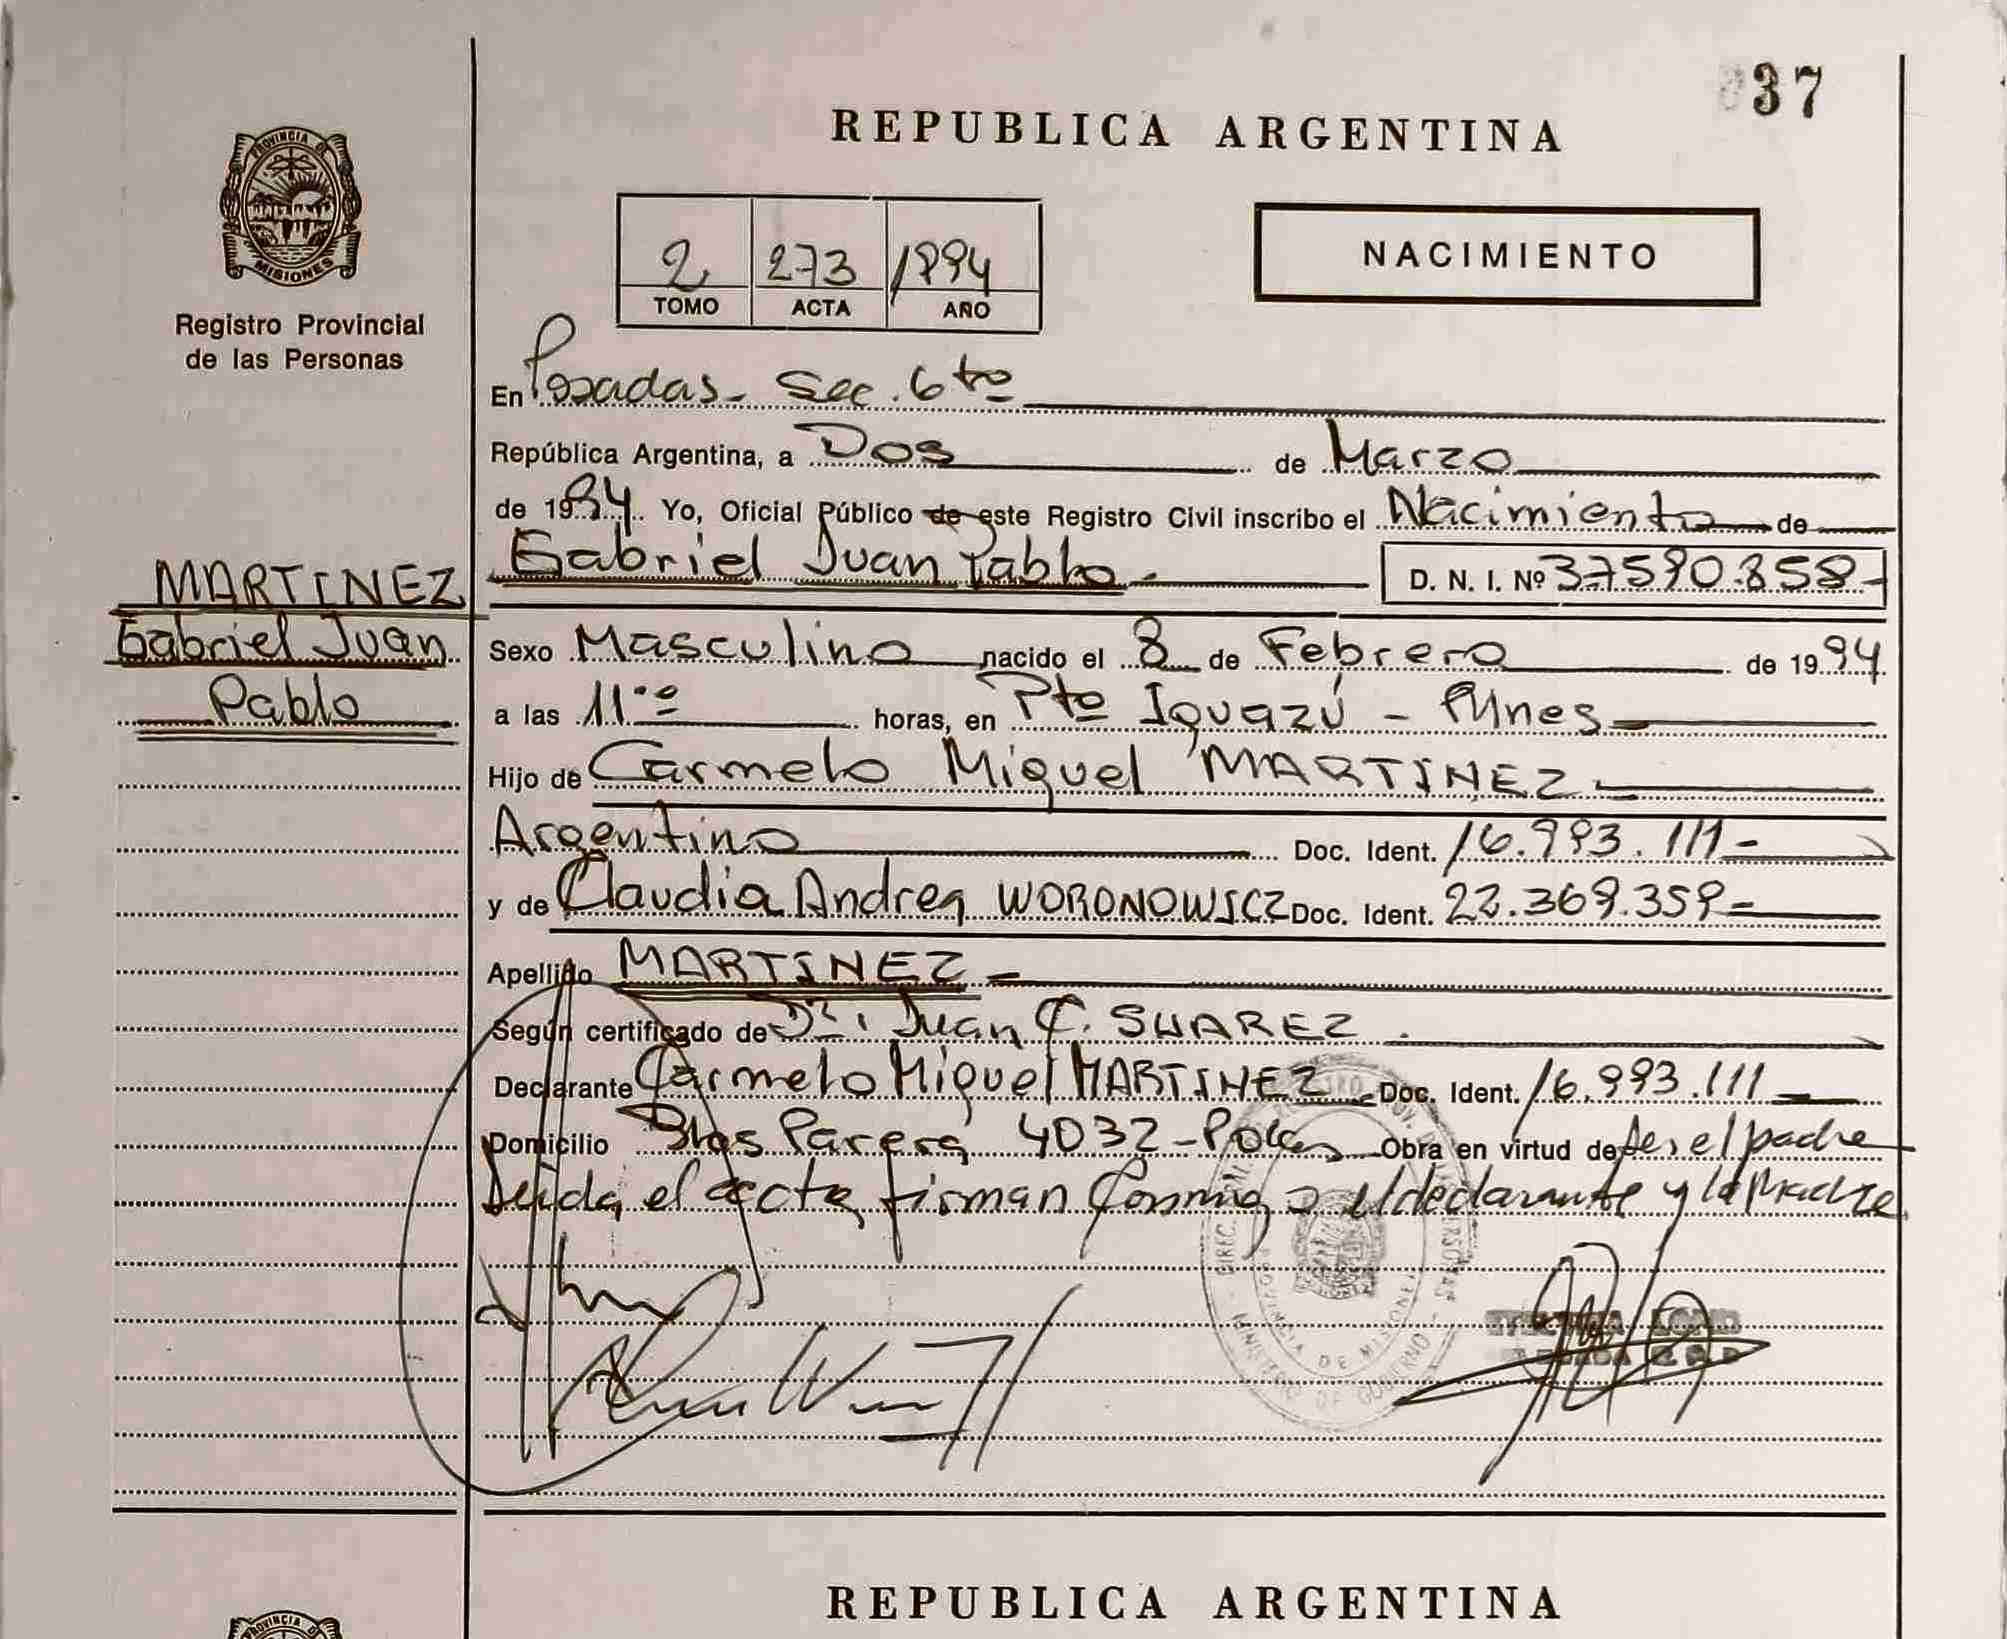 037
REPUBLICA ARGENTINA
PROVINCIA DE
MISIONES
Registro Provincial
de las Personas
2 273 1994
TOMO ACTA AÑO
NACIMIENTO
En Posadas - Sec. 6ta
República Argentina, a Dos de Marzo
de 1994 Yo, Oficial Público de este Registro Civil inscribo el Nacimiento de
Gabriel Juan Pablo - D. N. I. Nº 37590.858-
MARTINEZ
Gabriel Juan
Pablo
Sexo Masculino nacido el 8 de Febrero de 1994
a las 11.00 horas, en Pto Iguazú - Mnes
Hijo de Carmelo Miguel MARTINEZ -
Argentino Doc. Ident. 16.993.111-
y de Claudia Andrea WORONOWICZ Doc. Ident. 22.369.359-
Apellido MARTINEZ -
Según certificado de Dr. Juan C. SUAREZ.
Declarante Carmelo Miguel MARTINEZ - Doc. Ident. 16.993.111
Domicilio Blas Parera 4032 - Obra en virtud de ser el padre
Leida el acta firman Conmigo el declarante y la Madre
PROVINCIA DE MISIONES
MINISTERIO DE GOBIERNO
REPUBLICA ARGENTINA
PROVINCIA